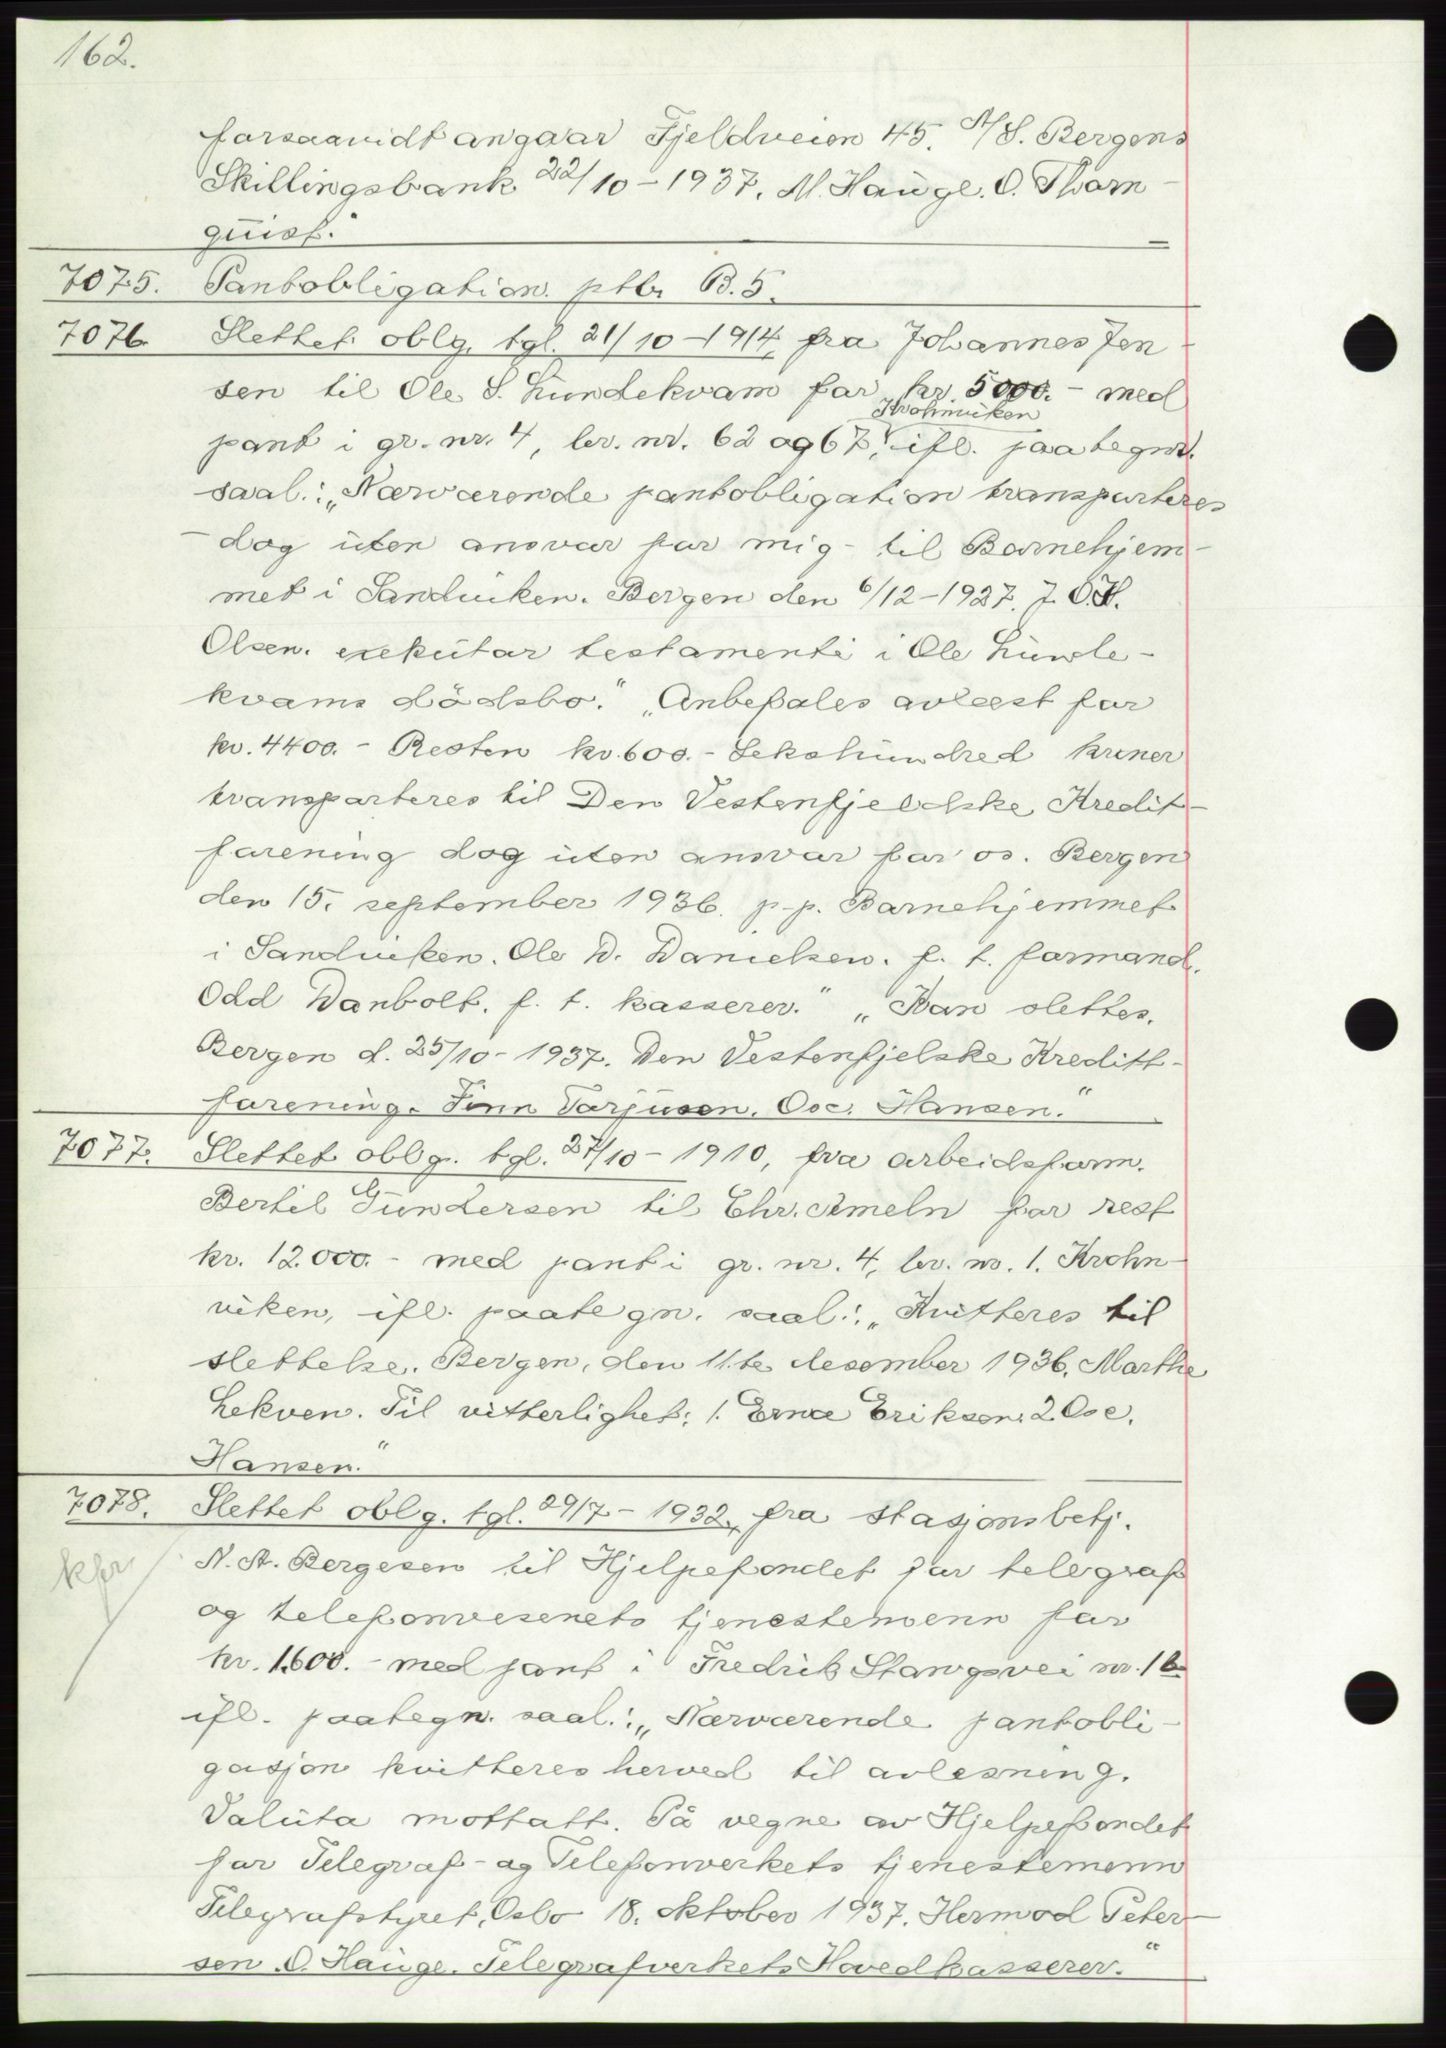 162.
forsaavidt angaar Fjeldveien 45. A/S. Bergens
Skillingsbank 22/10-1937. M. Hauge. O. Thorn-
quist."
7075. Pantobligation. ptbr B.5.
7076. Slettet oblg. tgl. 21/10-1914, fra Johannes Jen-
sen til Ole S. Lundekvam for kr. 5000.- med
Krohnviken
pant i gr. nr. 4, br. nr. 62 og 67, ifl. paategn.
saal.: „Nærværende pantobligation transporteres
- dog uten ansvar for mig - til Barnehjem-
met i Sandviken. Bergen den 6/12-1927. J. O. H.
Olsen. exekutor testamenti i Ole Lunde-
kvams dødsbo." „Anbefales avlæst for
kr. 4400.- Resten kr. 600.- Sekshundred kroner
transporteres til Den Vestenfjeldske Kredit-
forening dog uten ansvar for os. Bergen
den 15. september 1936. p.p. Barnehjemmet
i Sandviken. Ole D. Danielsen. f. t. formand.
Odd Danbolt. f. t. kasserer." „Kan slettes.
Bergen d. 25/10-1937. Den Vestenfjelske Kreditt-
forening. Finn Tarjusen. Osc. Hansen."
7077. Slettet oblg. tgl. 27/10-1910, fra arbeidsform.
Bertil Gundersen til Chr. Ameln for rest
kr. 12.000.- med pant i gr. nr. 4, br. nr. 1. Krohn-
viken, ifl. paategn. saal.: „Kvitteres til
slettelse. Bergen, den 11.te desember 1936. Marthe
Lekven. Til vitterlighet: 1. Erna Eriksen. 2. Osc.
Hansen."
7078. Slettet oblg. tgl. 29/7-1932, fra stasjonsbetj.
kfr
N. A. Bergesen til Hjelpefondet for telegraf
og telefonvesenets tjenestemenn for
kr. 1.600.- med pant i Fredrik Stangsvei nr. 16
ifl. paategn. saal.: „Nærværende pantobli-
gasjon kvitteres herved til avlesning.
Valuta mottatt. På vegne av Hjelpefondet
for Telegraf- og Telefonverkets tjenestemenn
Telegrafstyret, Oslo 18. oktober 1937. Hermod Peter-
sen. O. Hauge. Telegrafverkets Hovedkasserer."